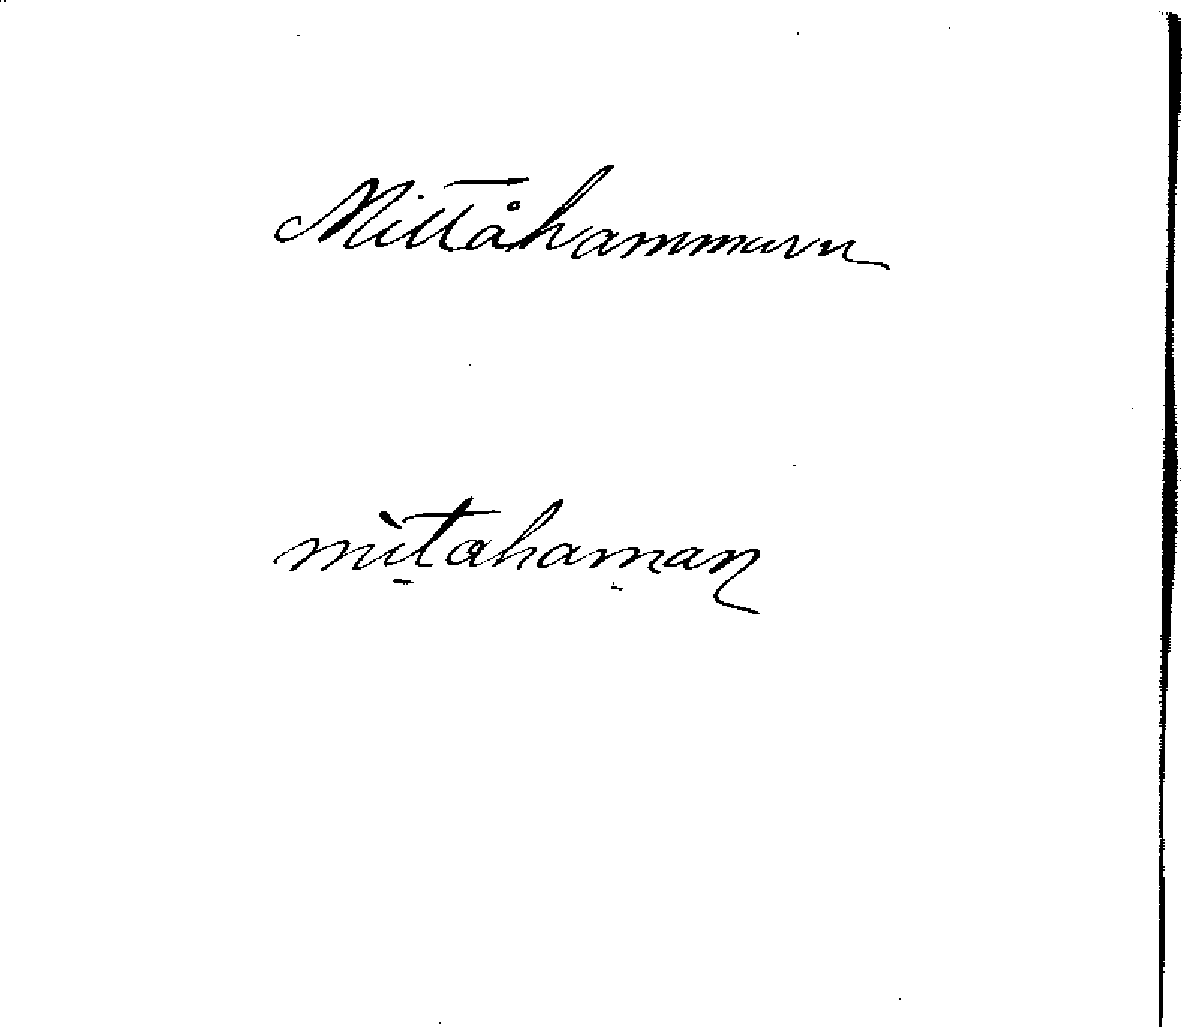 Mittåhammarn
mitahaman